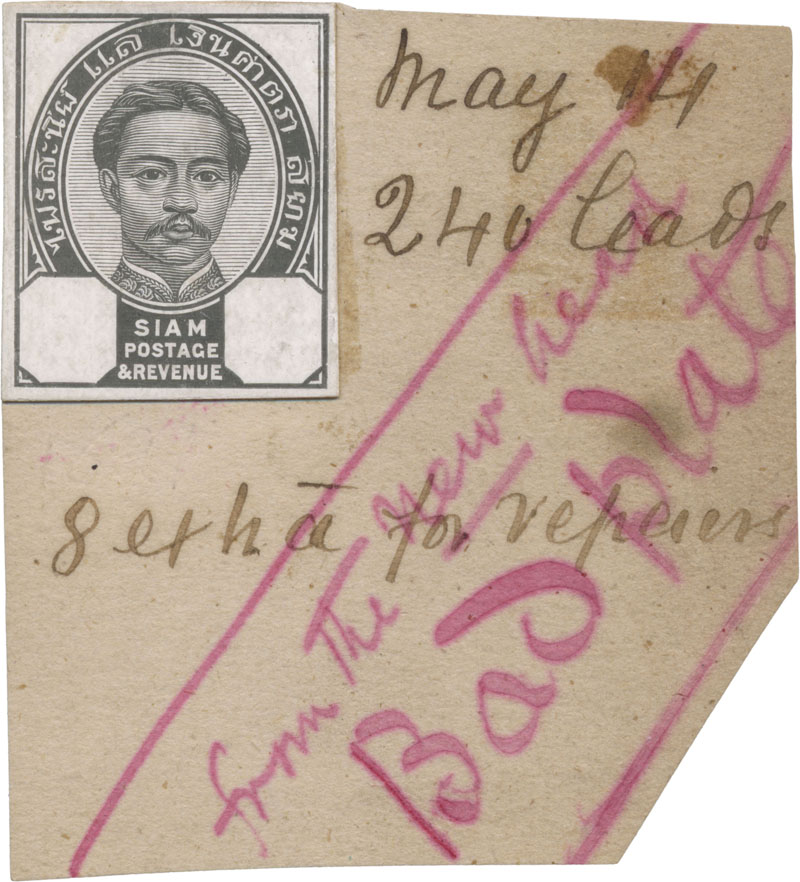 ไพรสะนีย์ แล เงินศาตรา สยาม
SIAM
POSTAGE
& REVENUE
May 14
240 leads
8 extra for repairs
from The New head
Bad plate